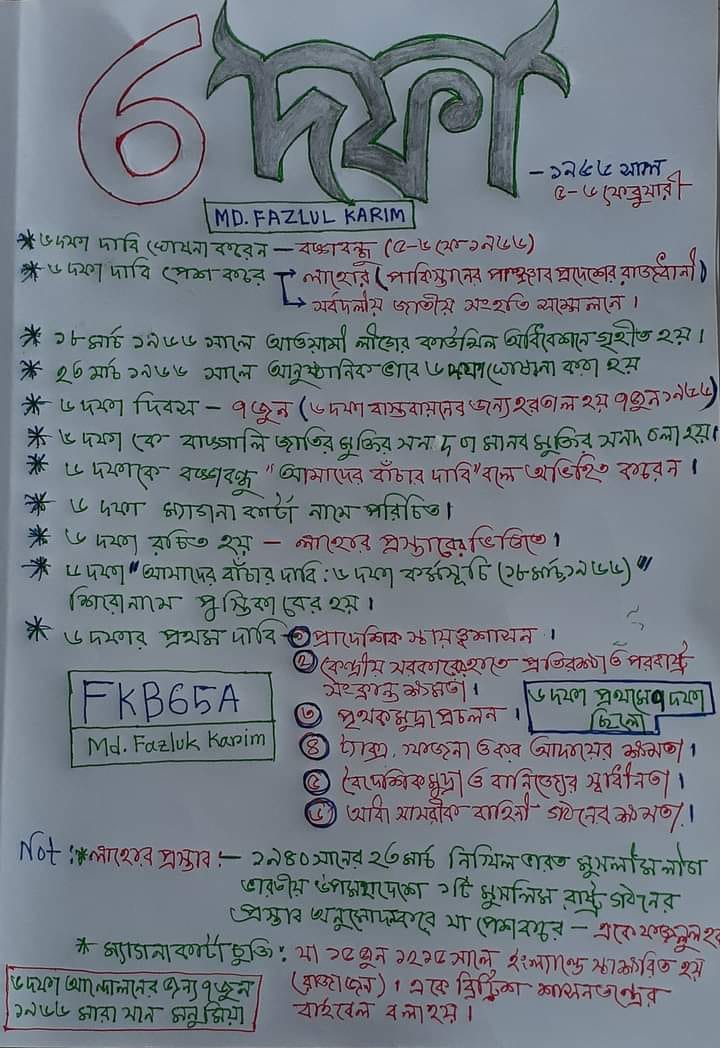 ৬ দফা
- ১৯৬৬ সাল
৫-৬ ফেব্রুয়ারী
MD. FAZLUL KARIM
* ৬ দফা দাবি ঘোষনা করেন – বঙ্গবন্ধু (৫-৬ ফেব ১৯৬৬)
* ৬ দফা দাবি পেশ করে → লাহোর (পাকিস্তানের পাঞ্জাব প্রদেশের রাজধানী)
↳ সর্বদলীয় জাতীয় সংহতি সম্মেলনে।
* ১৮ মার্চ ১৯৬৬ সালে আওয়ামী লীগের কাউন্সিল অধিবেশনে গৃহীত হয়।
* ২৩ মার্চ ১৯৬৬ সালে আনুষ্ঠানিকভাবে ৬ দফা ঘোষনা করা হয়
* ৬ দফা দিবস – ৭ জুন (৬ দফা বাস্তবায়নের জন্য হরতাল হয় ৭ জুন ১৯৬৬)
* ৬ দফা কে বাঙ্গালি জাতির মুক্তির সনদ বা মানব মুক্তির সনদ বলা হয়।
* ৬ দফাকে বঙ্গবন্ধু "আমাদের বাঁচার দাবি" বলে অভিহিত করেন।
* ৬ দফা ম্যাগনা কার্টা নামে পরিচিত।
* ৬ দফা রচিত হয় – লাহোর প্রস্তাবের ভিত্তিতে।
* ৬ দফা "আমাদের বাঁচার দাবি: ৬ দফা কর্মসূচি (১৮ মার্চ, ১৯৬৬)"
শিরোনামে পুস্তিকা বের হয়।
* ৬ দফার প্রথম দাবি - ১ প্রাদেশিক স্বায়ত্বশাসন।
২ কেন্দ্রীয় সরকারের হাতে প্রতিরক্ষা ও পররাষ্ট্র
সংক্রান্ত ক্ষমতা।
৩ পৃথক মুদ্রা প্রচলন।
৬ দফা প্রথমে ৭ দফা
ছিলো
FKB65A
Md. Fazluk Karim
৪ ট্যাক্স, খাজনা ও কর আদায়ের ক্ষমতা।
৫ বৈদেশিক মুদ্রা ও বানিজ্যের স্বাধীনতা।
৬ আধা সামরীক বাহিনী গঠনের ক্ষমতা।
Not : * লাহোর প্রস্তাব :- ১৯৪০ সালের ২৩ মার্চ নিখিল ভারত মুসলীম লীগ
ভারতীয় উপমহাদেশে ১টি মুসলিম রাষ্ট্র গঠনের
প্রস্তাব অনুমোদন করে যা পেশ করে – একে ফজলুল হক
* ম্যাগনাকার্টা চুক্তি: যা ১৫ জুন ১২১৫ সালে ইংল্যান্ডে স্বাক্ষরিত হয়
(রাজা জন)। একে ব্রিটিশ শাসনতন্ত্রের
বাইবেল বলা হয়।
৬ দফা আন্দোলনের জন্য ৭ জুন
১৯৬৬ মারা যান মনু মিয়া